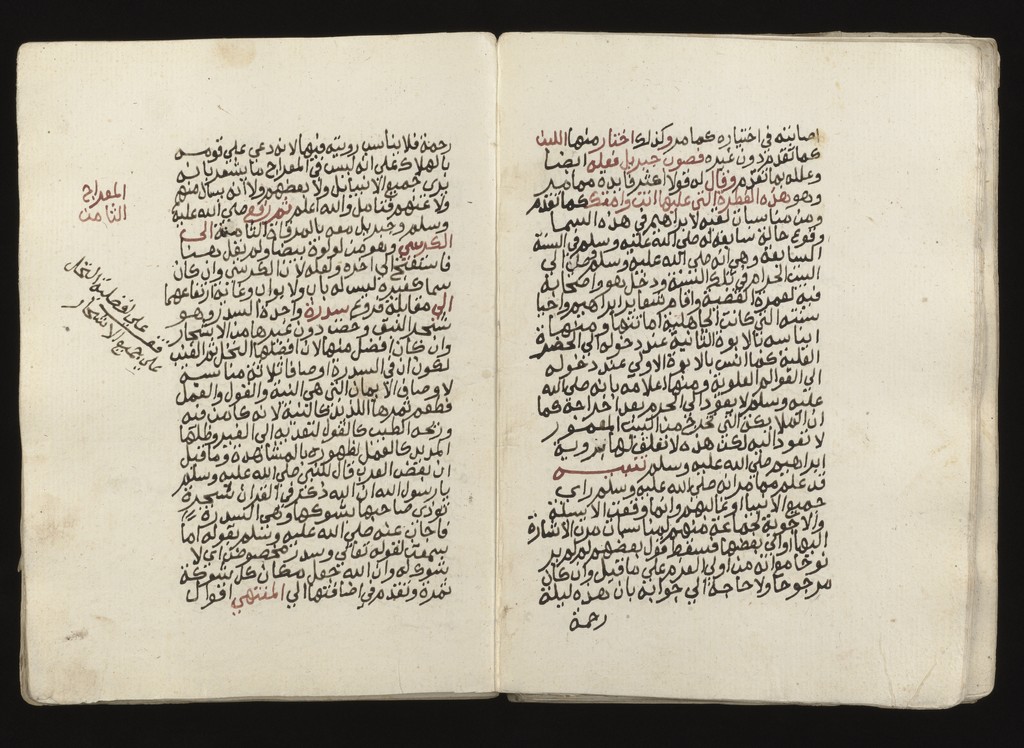 اصابته في اختياره كما مر وكذلك اختار منها اللبن
كما تقدم دون غيره فصوب جبريل فعله ايضا
وعلله بما تقدم وقال له قولا اكثر فايدة مما مر
وهو هذه الفطرة التي عليها انت وامتك كما تقدم
ومن مناسبات لقيه لابراهيم في هذه السما
وقوع حالة سابعة له صلى الله عليه وسلم في السنة
السابعة وهي انه صلى الله عليه وسلم وصل الى
البيت الحرام في تلك السنة ودخل هو واصحابه
فيه لعمرة القضية واقام شعاير ابراهيم واحيا
سنته التي كانت الجاهلية اماتتها ومنها
ايناسه بالابوة الثانية عند دخوله الى الحضرة
العلية كما انس بالابوة الاولى عند دخوله
الى العوالم العلوية ومنها اعلامه بانه صلى الله
عليه وسلم لا يعود الى الحرم بعد اخراجه كما
ان الملايكة التي تخرج من البيت المعمور
لا تعود اليه لكن هذه لا تعلق لها بروية
ابراهيم صلى الله عليه وسلم تنبيه
قد علم مما مر انه صلى الله عليه وسلم راى
جميع الانبيا او غالبهم وانما وقعت الاسيلة
والاجوبة لجماعة منهم لمناسبات مرت الاشارة
اليها او الى بعضها فسقط قول بعضهم لم لم ير
نوحا مع انه من اولى العزم على ما قيل وان كان
مرجوحا ولا حاجة الى جوابه بان هذه ليلة
رحمة
رحمة فلا يناسب رويته فيها لانه دعى على قومه
بالهلاك على انه ليس في المعراج ما يشعر بانه
يرى جميع الانبيا بل ولا بعضهم ولا انه يسال منهم
ولا عنهم فتامل والله اعلم ثم رقي صلى الله عليه
وسلم وجبريل معه بالمرقاة الثامنة الى
الكرسي وهو من لولوة بيضا ولم يقل هنا
فاستفتح الى اخره ولعله لان الكرسي وان كان
سما كغيره ليس له باب ولا بواب وغاية ارتفاعهما
الى مقابلة فروع سدرة واحدة السدر وهو
شجر النبق وخصت دون غيرها من الاشجار
وان كان افضل منها لان افضلها النخل ثم العنب
لكون ان في السدرة اوصافا ثلاثة مناسبة
لاوصاف الايمان التي هي النية والقول والعمل
فطعم ثمرها اللذيذ كالنية لانه كامن فيه
وريحه الطيب كالقول لتعديه الى الغير وظلها
المديد كالعمل لظهوره بالمشاهدة وما قيل
ان بعض العرب قال للنبي صلى الله عليه وسلم
يا رسول الله ان الله ذكر في القران شجرة
توذي صاحبها بشوكها وهي السدرة
فاجاب عنه صلى الله عليه وسلم بقوله اما
سمعت لقوله تعالى وسدر مخضود اي لا
شوك له وان الله جعل مكان كل شوكة
ثمرة وتقدم في اضافتها الى المنتهى اقوال
المعراج
الثامن
قف على افضلية النخل
على جميع الاشجار